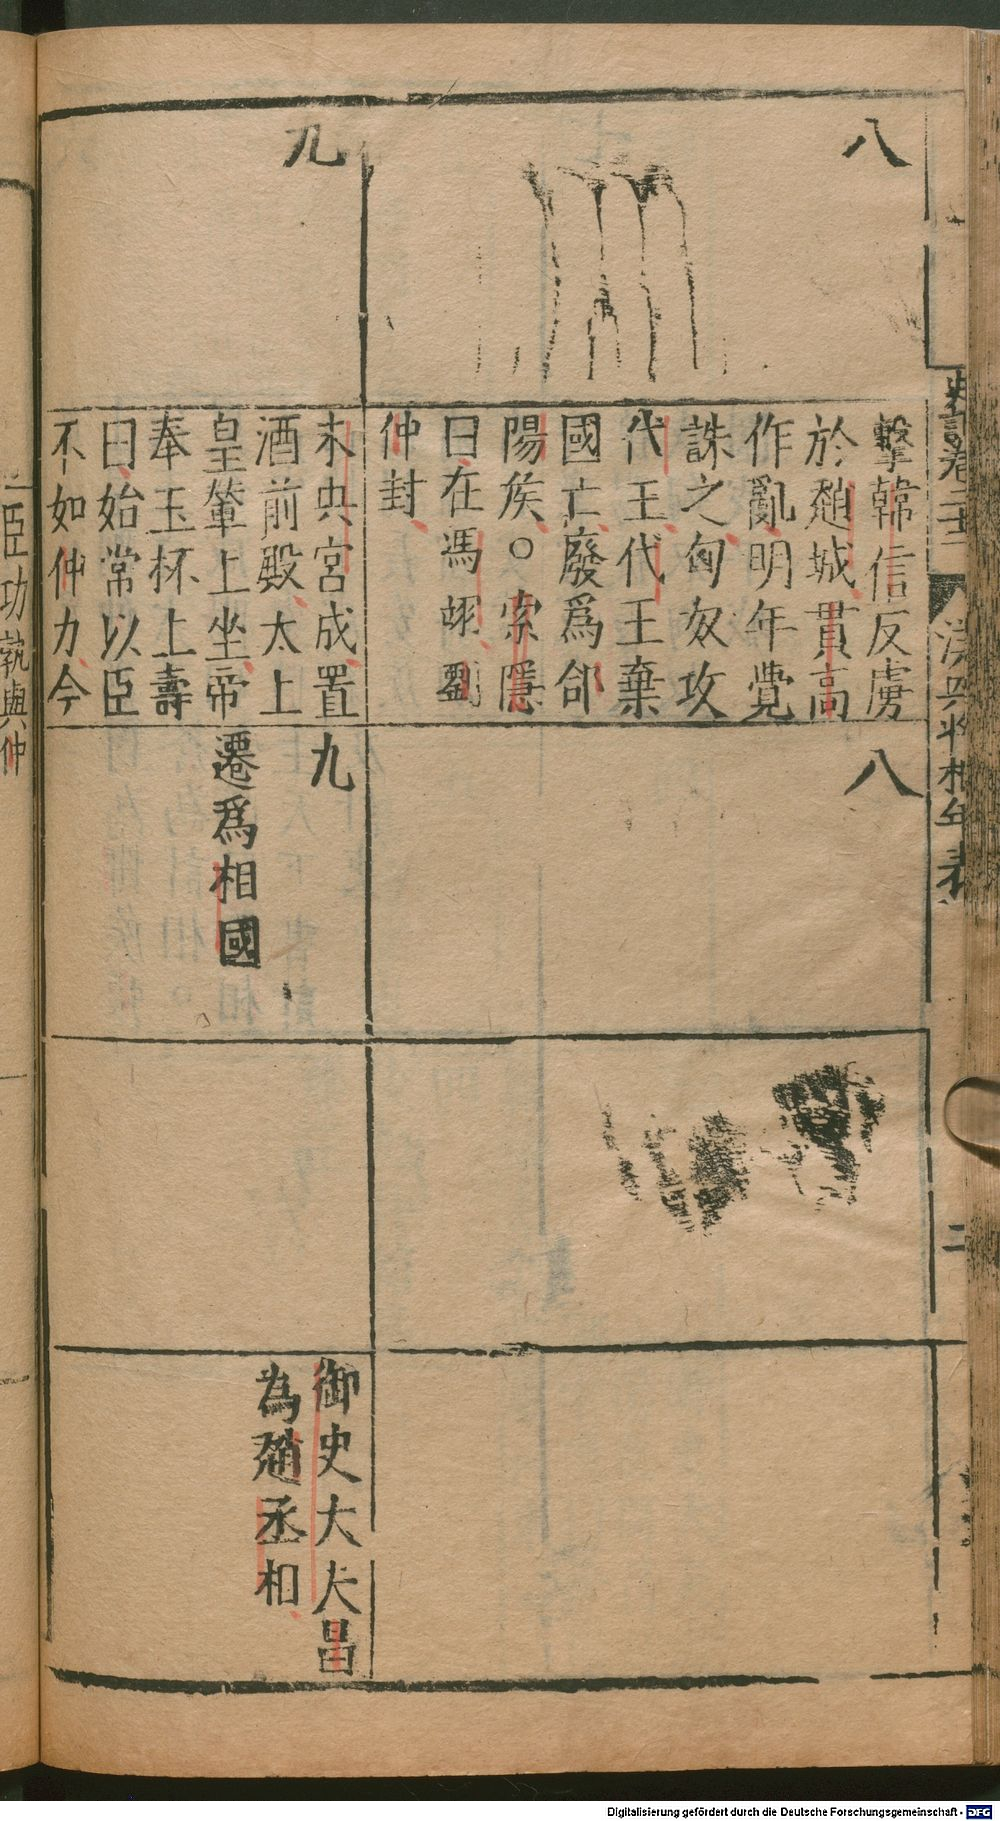 史記卷二十二
漢興將相年表
二
八
擊韓信反虜
於趙城貫高
作亂明年覺
誅之匈奴攻
代王代王棄
國亡廢爲郃
陽侯○索隱
曰在馮翊劉
仲封
八
九
未央宮成置
酒前殿太上
皇輦上坐帝
奉玉杯上壽
曰始常以臣
不如仲力今
九
遷爲相國
御史大夫昌
為趙丞相
臣功孰與仲
Digitalisierung gefördert durch die Deutsche Forschungsgemeinschaft - DFG